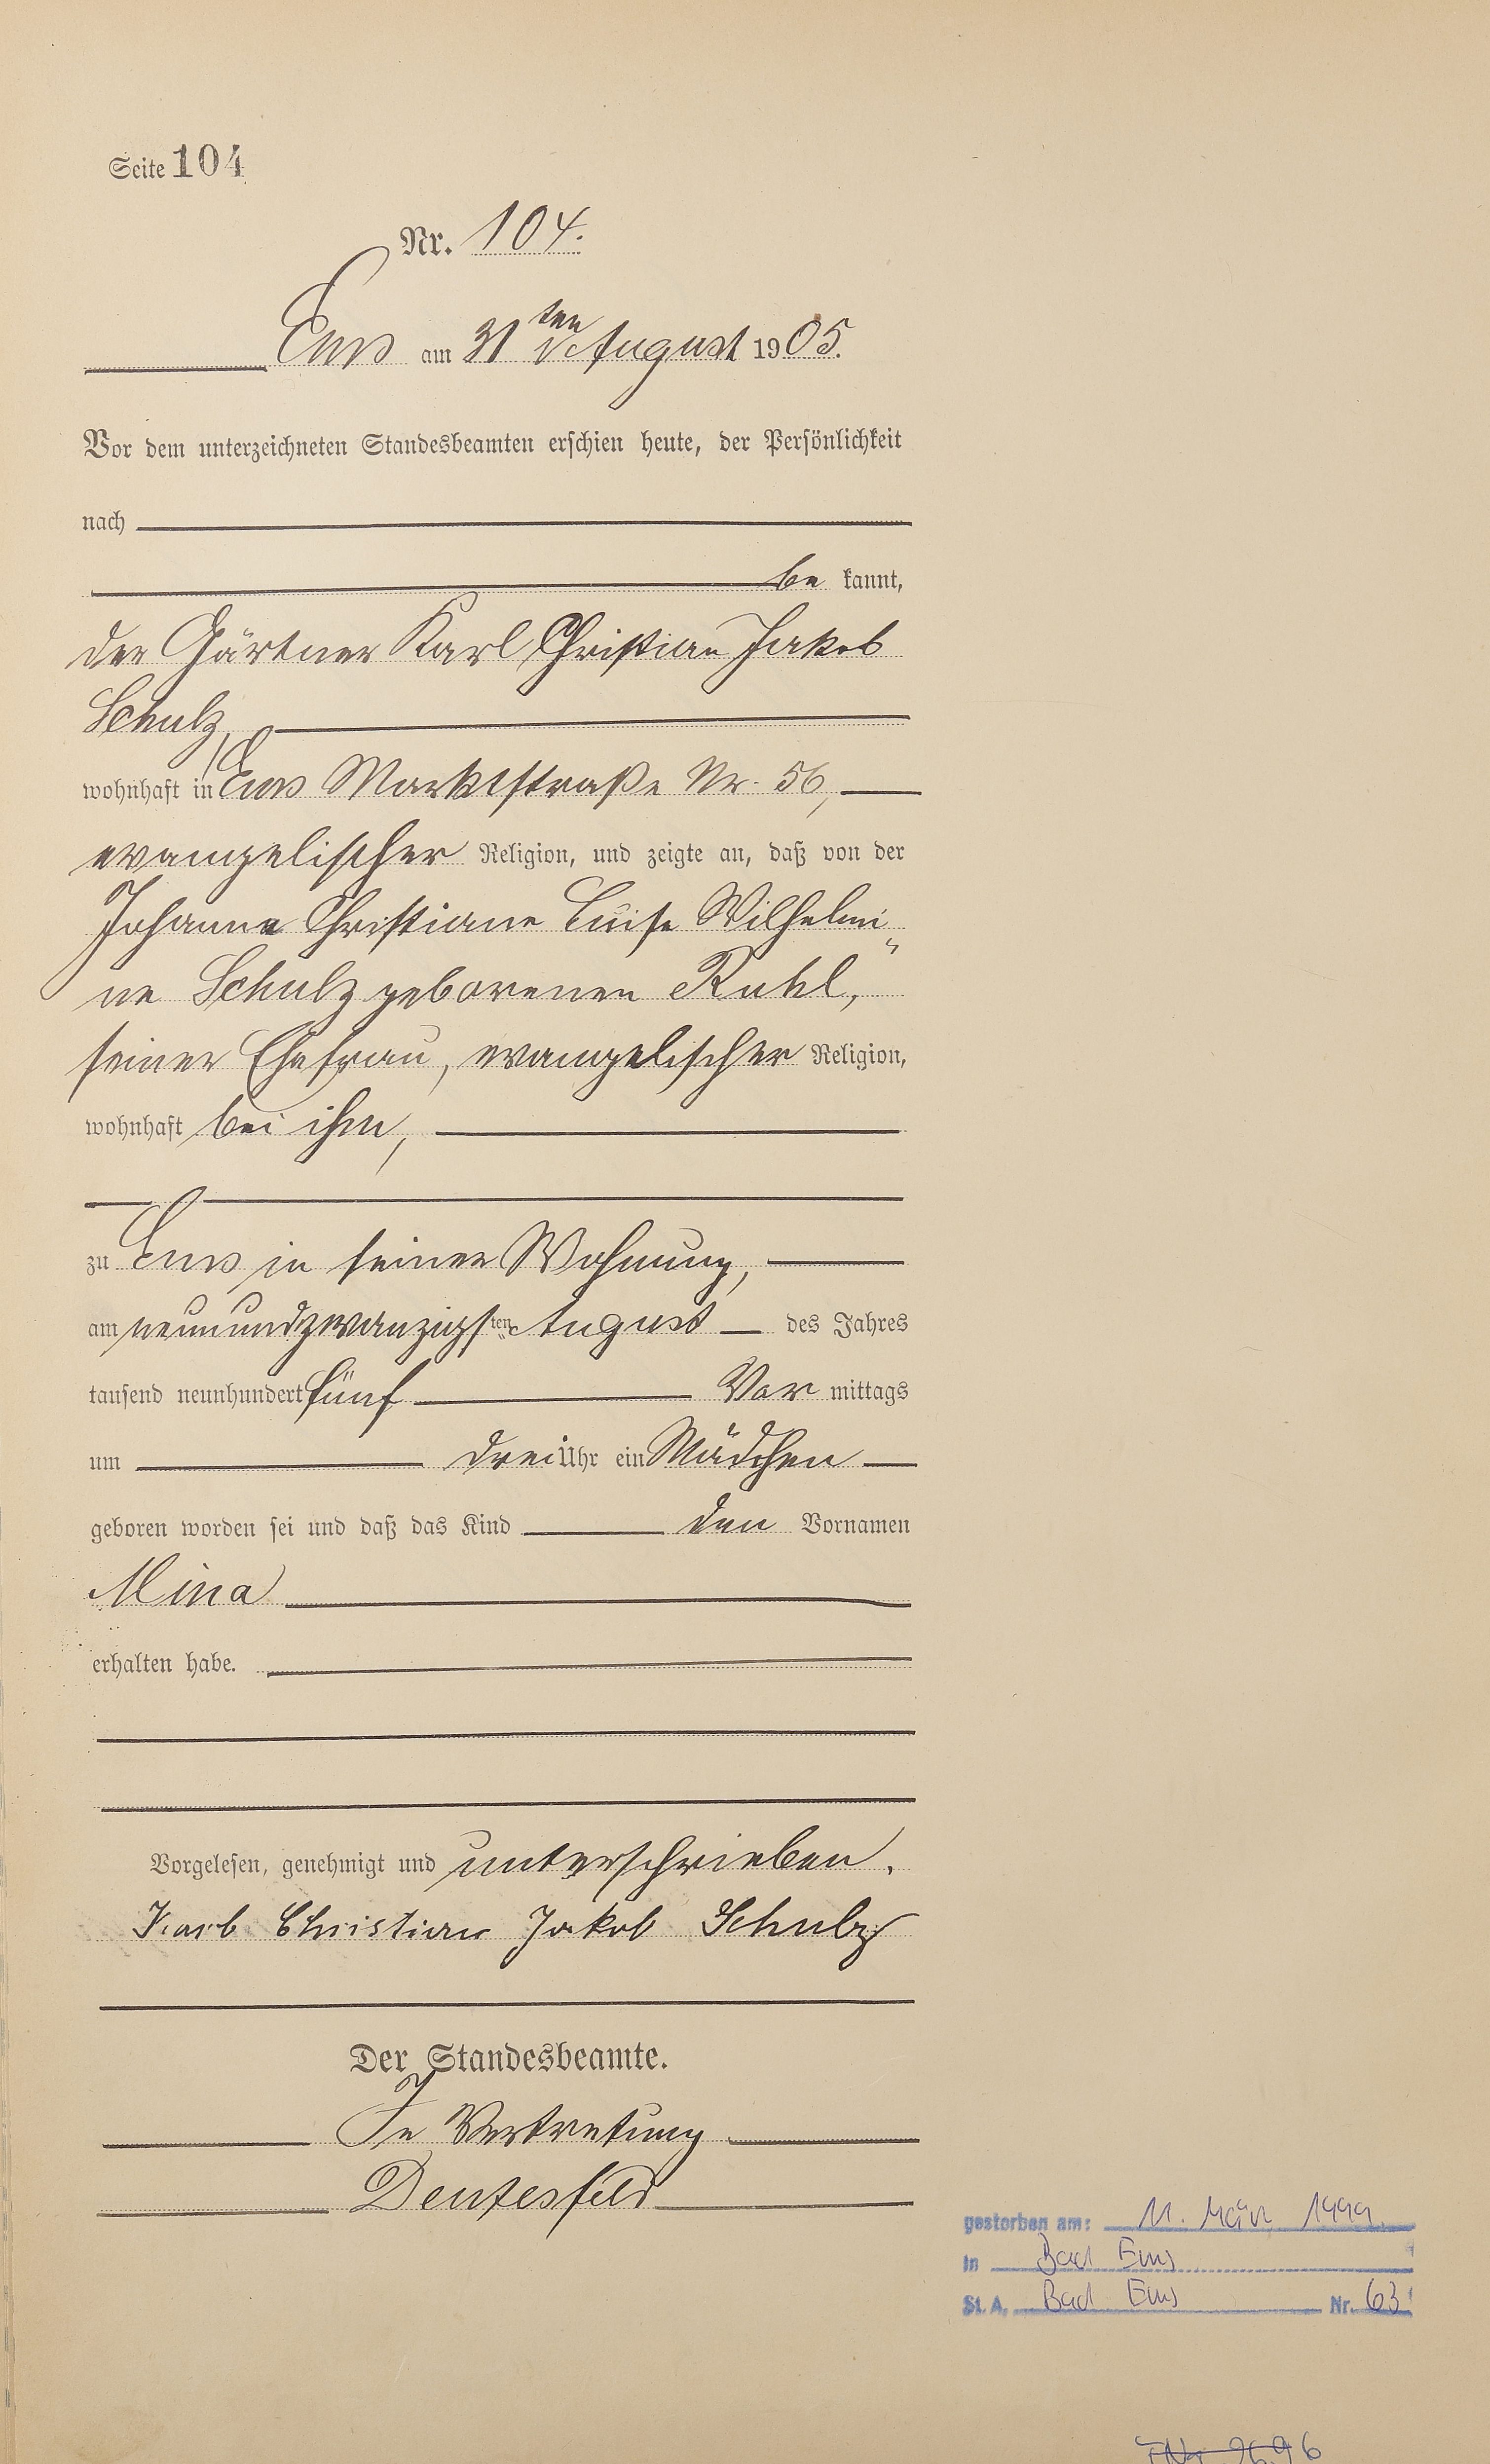 Seite 104
Nr. 104.
Ems am 31ten August 1905.
Vor dem unterzeichneten Standesbeamten erschien heute, der Persönlichkeit
nach
be kannt,
der Gärtner Karl Christian Jakob
Schulz,
wohnhaft in Ems Marktstraße Nr. 56,
evangelischer Religion, und zeigte an, daß von der
Johanna Christiane Luise Wilhelmi„
ne Schulz geborenen Ruhl,
seiner Ehefrau, evangelischer Religion,
wohnhaft bei ihm,
zu Ems in seiner Wohnung,
am neunundzwanzigsten August des Jahres
tausend neunhundert fünf Vor mittags
um drei Uhr ein Mädchen
geboren worden sei und daß das Kind den Vornamen
Mina
erhalten habe.
Vorgelesen, genehmigt und unterschrieben.
Karl Christian Jakob Schulz
Der Standesbeamte.
In Vertretung
gestorben am: 11. März 1999
in Bad Ems
St. A. Bad Ems Nr. 63